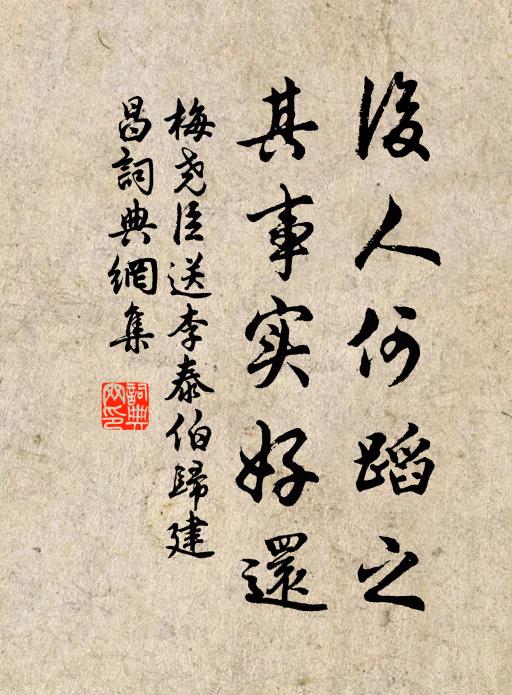 後人何蹈之
其事实好還
梅尧臣送李泰伯歸建
昌詞典網集
詞典
网印